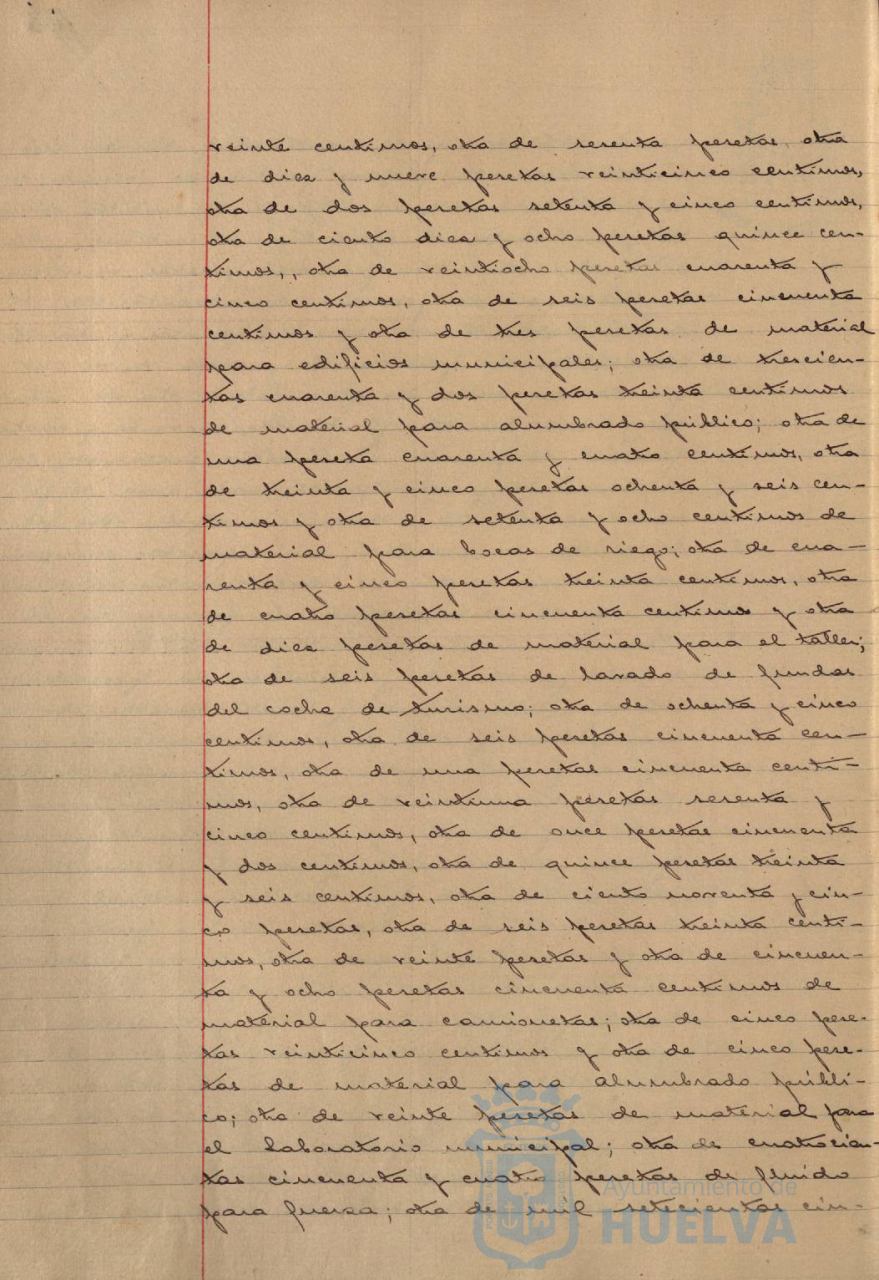 veinte centimos, otra de sesenta pesetas, otra
de diez y nueve pesetas veinticinco centimos,
otra de dos pesetas setenta y cinco centimos,
otra de ciento diez y ocho pesetas quince cen-
timos,, otra de veintiocho pesetas cuarenta y
cinco centimos, otra de seis pesetas cincuenta
centimos y otra de tres pesetas de material
para edificios municipales; otra de trescien-
tas cuarenta y dos pesetas treinta centimos
de material para alumbrado público; otra de
una peseta cuarenta y cuatro centimos, otra
de treinta y cinco pesetas ochenta y seis cen-
timos y otra de setenta y ocho centimos de
material para bocas de riego; otra de cua-
renta y cinco pesetas treinta centimos, otra
de cuatro pesetas cincuenta centimos y otra
de diez pesetas de material para el taller;
otra de seis pesetas de lavado de fundas
del coche de turismo; otra de ochenta y cinco
centimos, otra de seis pesetas cincuenta cen-
timos, otra de una pesetas cincuenta centi-
mos, otra de veintiuna pesetas sesenta y
cinco centimos, otra de once pesetas cincuenta
y dos centimos, otra de quince pesetas treinta
y seis centimos, otra de ciento noventa y cin-
co pesetas, otra de seis pesetas treinta centi-
mos, otra de veinte pesetas y otra de cincuen-
ta y ocho pesetas cincuenta centimos de
material para camionetas; otra de cinco pese-
tas veinticinco centimos y otra de cinco pese-
tas de material para alumbrado públi-
co; otra de veinte pesetas de material para
el Laboratorio municipal; otra de cuatrocien-
tas cincuenta y cuatro pesetas de fluido
para fuerza; otra de mil setecientas cin-
Ayuntamiento de
HUELVA